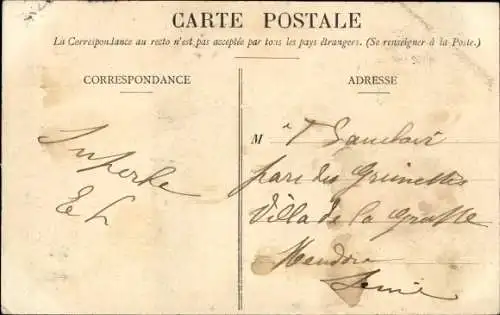 CARTE POSTALE
La Correspondance au recto n'est pas acceptée par tous les pays étrangers. (Se renseigner à la Poste.)
CORRESPONDANCE
ADRESSE
Superbe
E L
M
parc des
Villa de la
Seine